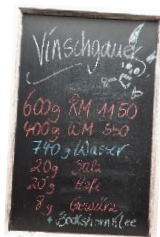 Vinschgauer
600g RM 1150
400g WM 550
740g Wasser
20g Salz
20g Hefe
8g Gewürz
+ Bockshornklee